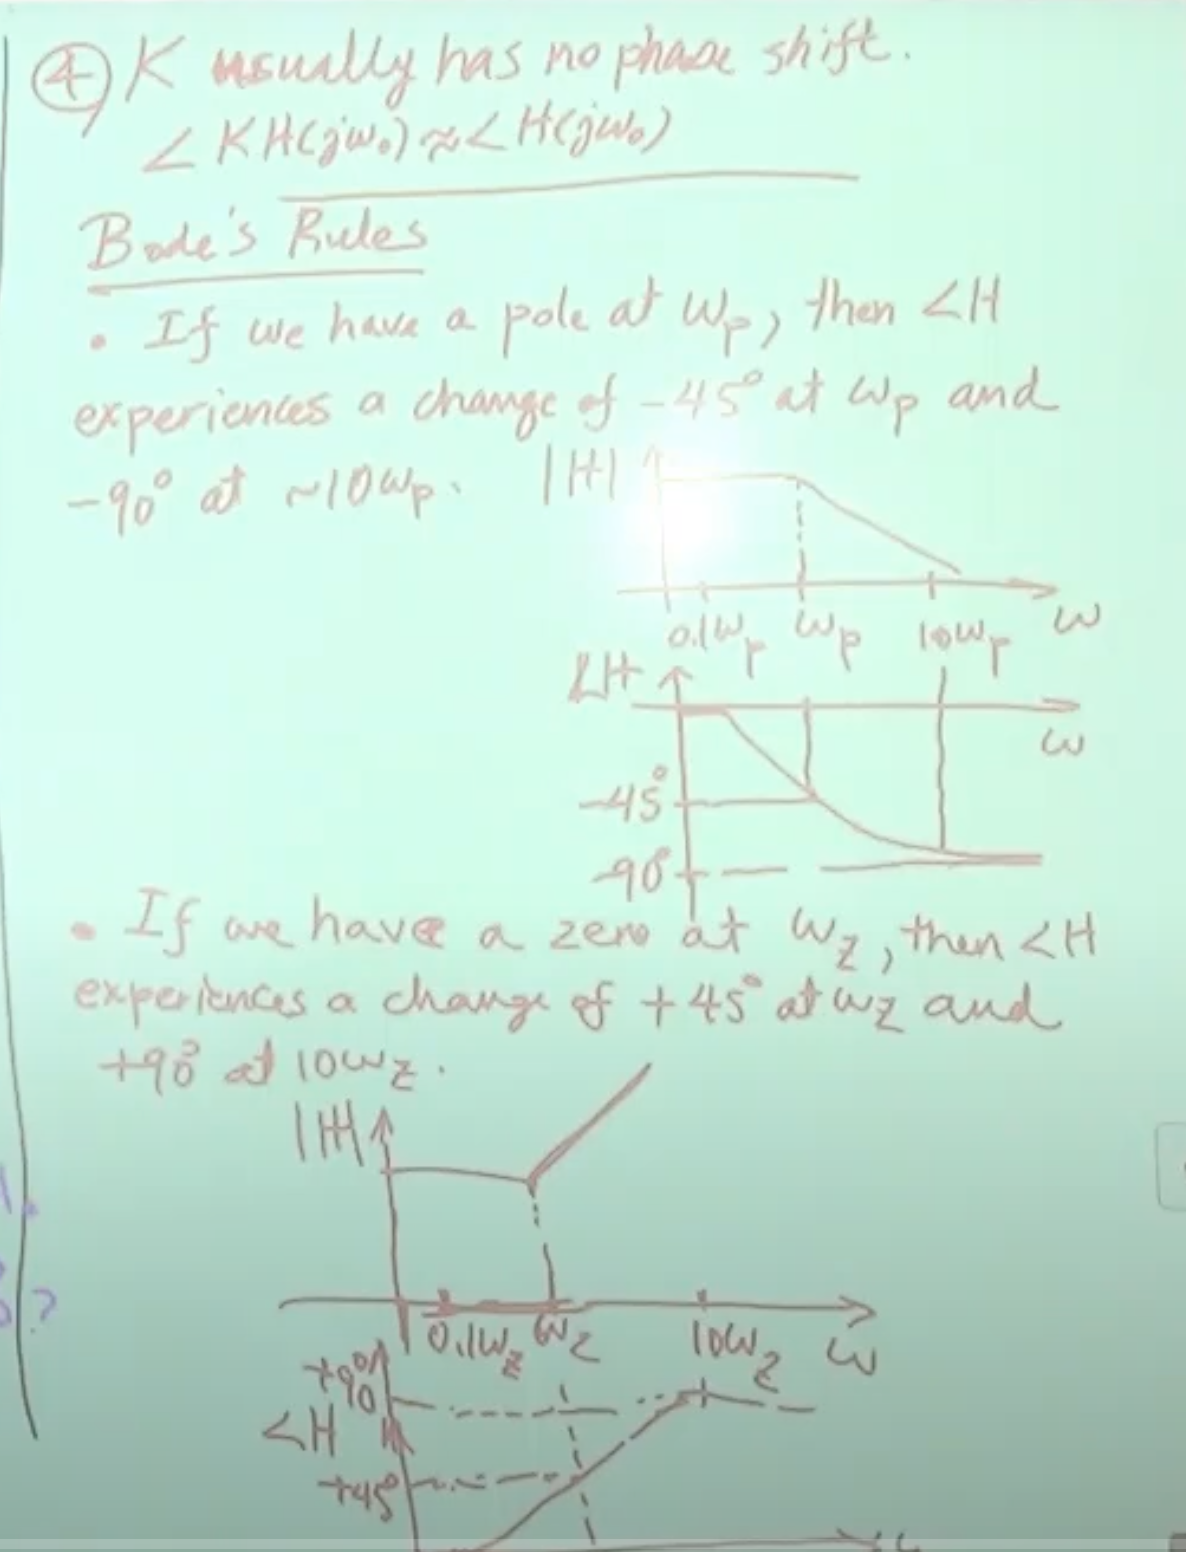 ④ K usually has no phase shift.
∠KH(jω₀) ≈ ∠H(jω₀)
Bode's Rules
• If we have a pole at ωp, then ∠H
experiences a change of -45° at ωp and
-90° at ~10ωp.
|H|
0.1ωp ωp 10ωp ω
∠H
ω
-45°
-90°
• If we have a zero at ωz, then ∠H
experiences a change of +45° at ωz and
+90° at 10ωz.
|H|
0.1ωz ωz 10ωz ω
+90°
∠H
+45°
?